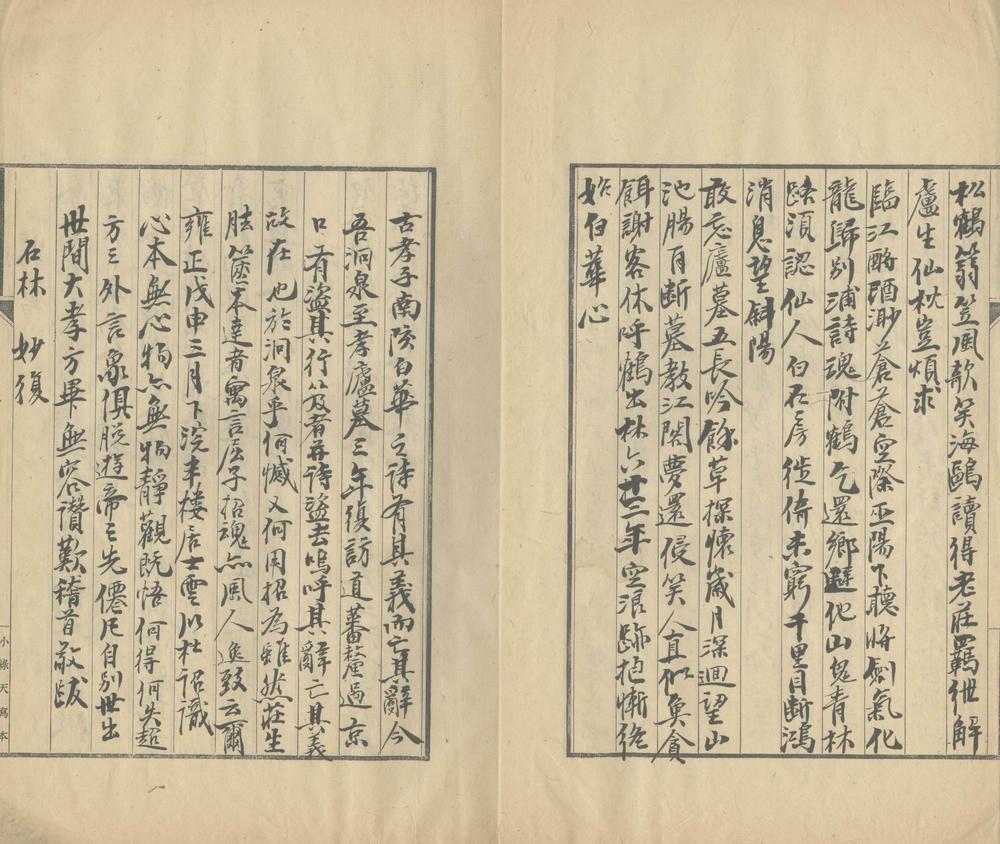 松鶴翁笠風歌笑海鷗讀得老莊羈紲解
盧生仙枕豈煩求
臨江酹酒渺蒼蒼空際巫陽下聽將劍氣化
龍歸別浦詩魂附鶴乞還鄉避他山鬼青林
路須認仙人白石房徙倚未窮千里目斷鴻
消息望斜陽
敢忘廬墓五長吟餘草探懷歲月深迴望山
池腸百斷墓教江闊夢還侵笑人直似魚貪
餌謝客休呼鶴出林六十三年空浪跡抱慚終
始白華心
古孝子南陔白華之詩有其義而亡其辭今
吾洞泉至孝廬墓三年復訪道蕃釐過京
口有盜其行笈者并詩盜去嗚呼其辭亡其義
故在也於洞泉乎何憾又何用招為雖然莊生
胠篋本達者寓言屈子招魂亦風人逸致云爾
雍正戊申三月下浣半樓居士雲以杜詔識
心本無心物亦無物靜觀既悟何得何失超
方之外言象俱脫遊帝之先僊凡自別世出
世間大孝方畢無容讚歎稽首敬跋
石林 妙復
小綠天寫本